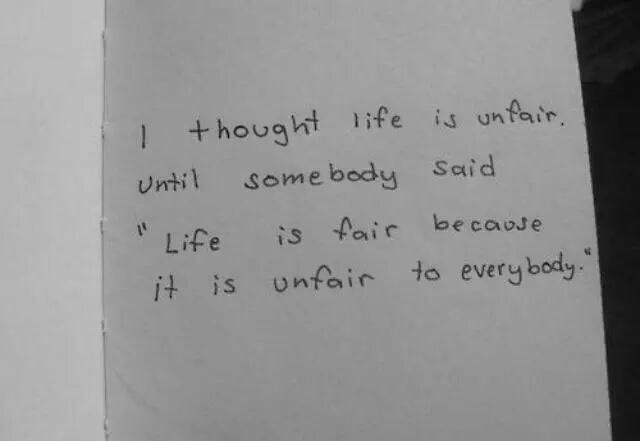 I thought life is unfair.
Until somebody said
"Life is fair because
it is unfair to everybody."